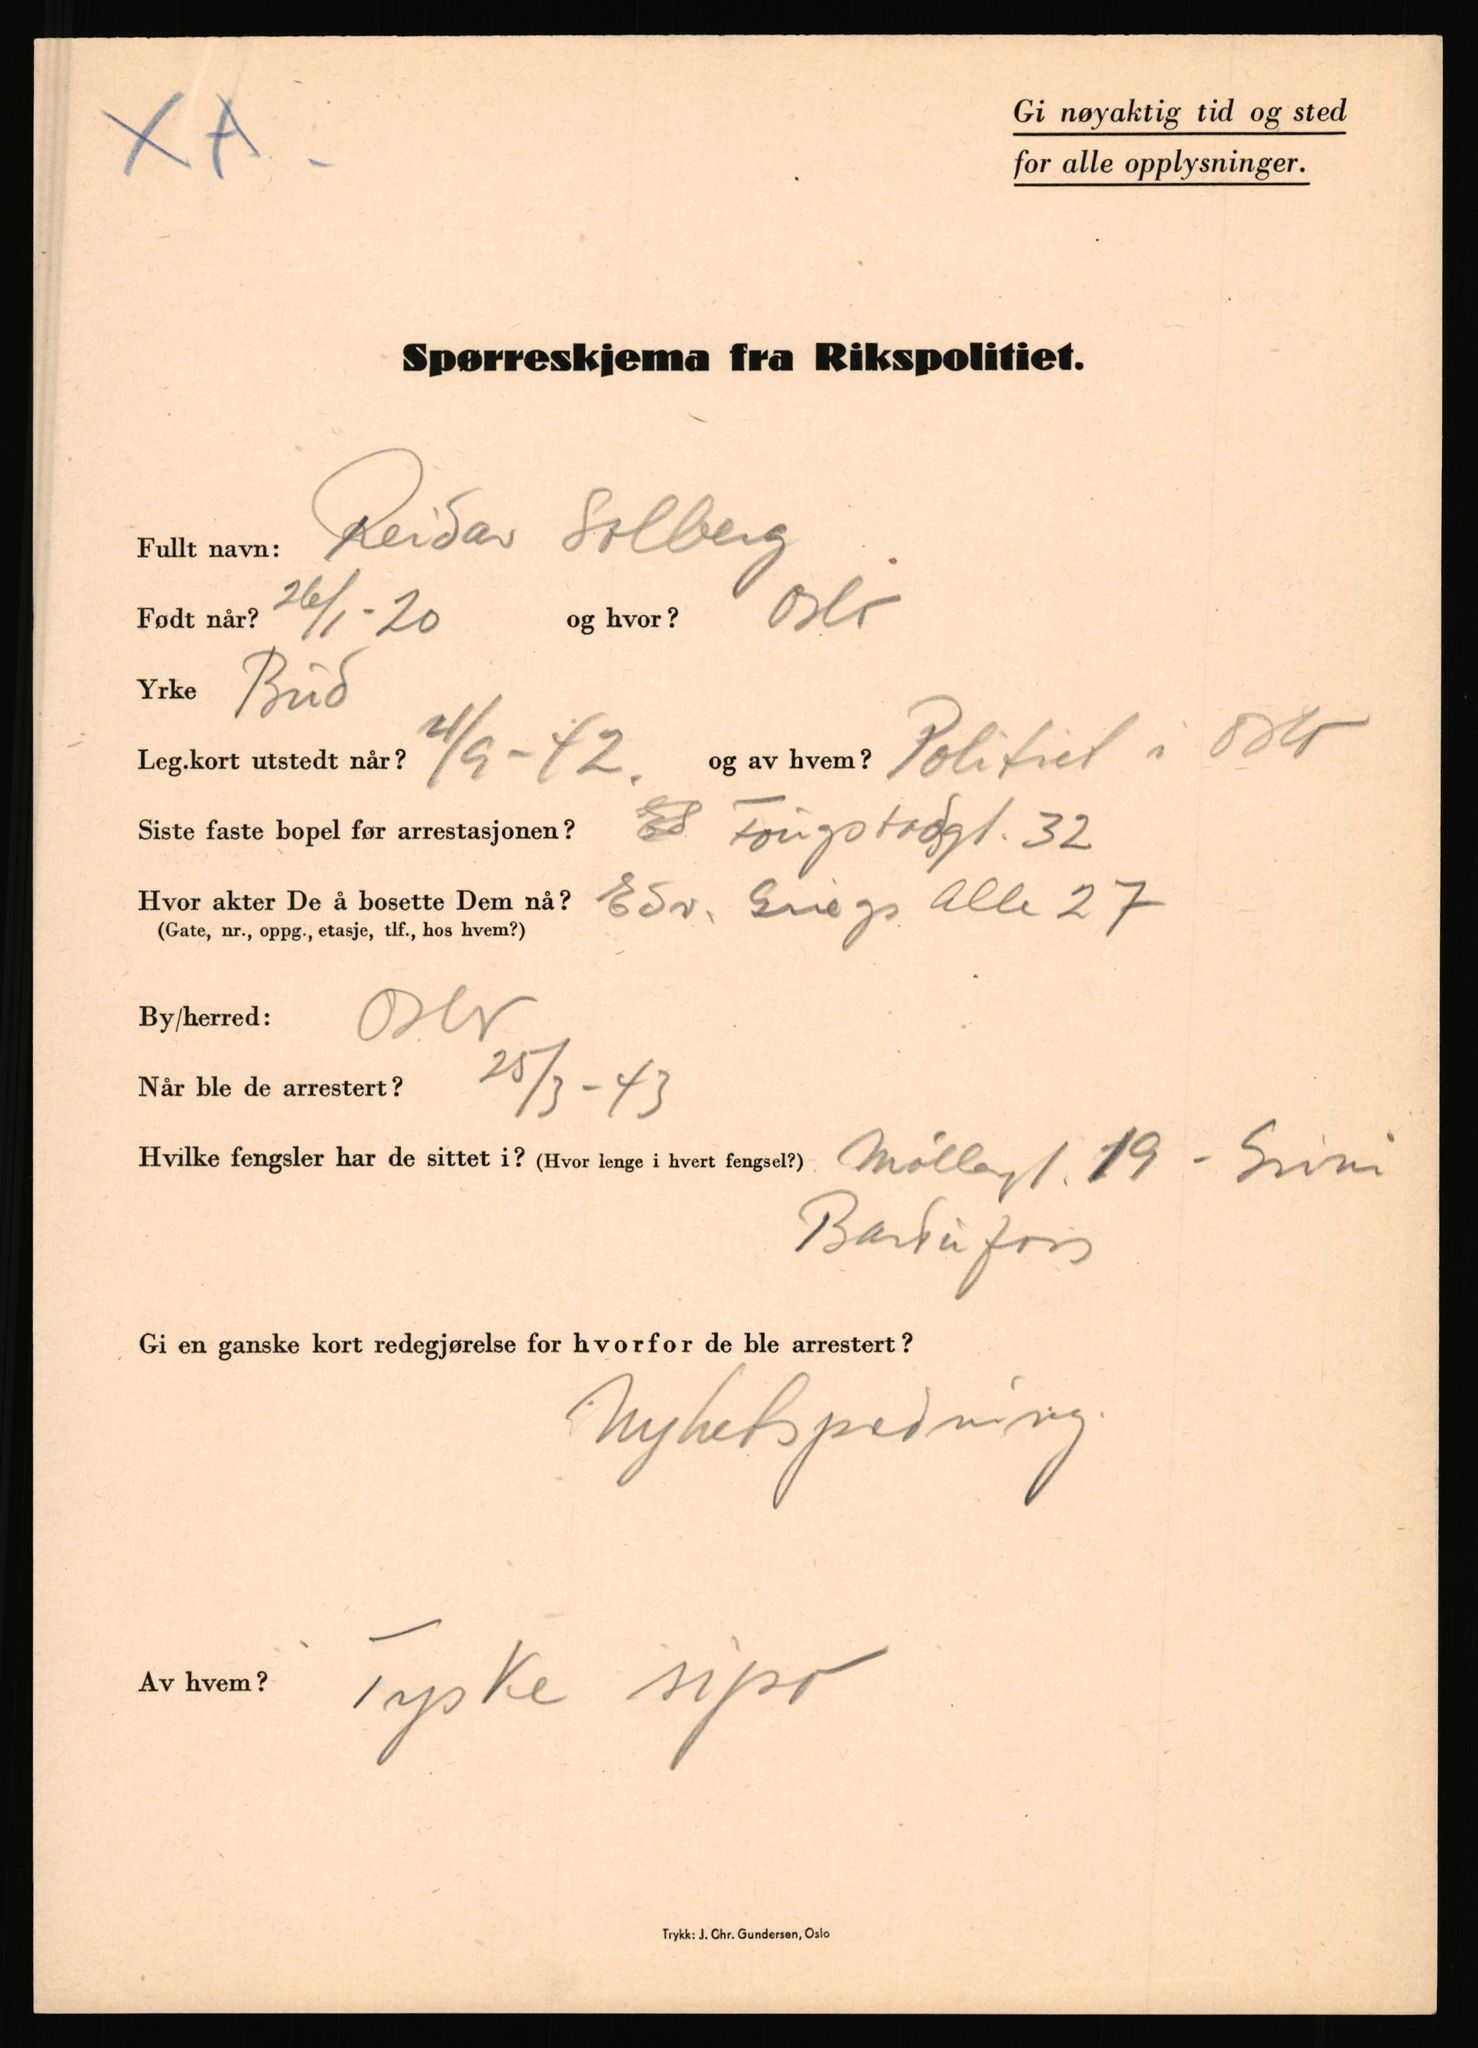 XA -
Gi nøyaktig tid og sted
for alle opplysninger.
Spørreskjema fra Rikspolitiet.
Fullt navn: Reidar Solberg
Født når? 26/1-20 og hvor? Oslo
Yrke Bud
Leg.kort utstedt når? 21/9-42. og av hvem? Politiet i Oslo
Siste faste bopel før arrestasjonen? Tougstadgt. 32
Hvor akter De å bosette Dem nå? Edv. Griegs Alle 27
(Gate, nr., oppg., etasje, tlf., hos hvem?)
By/herred: Oslo
Når ble de arrestert? 25/3-43
Hvilke fengsler har de sittet i? (Hvor lenge i hvert fengsel?) Møllergt. 19 - Grini
Bardufoss
Gi en ganske kort redegjørelse for hvorfor de ble arrestert?
Nyhetspredning.
Av hvem? Tyske sipo
Trykk: J. Chr. Gundersen, Oslo